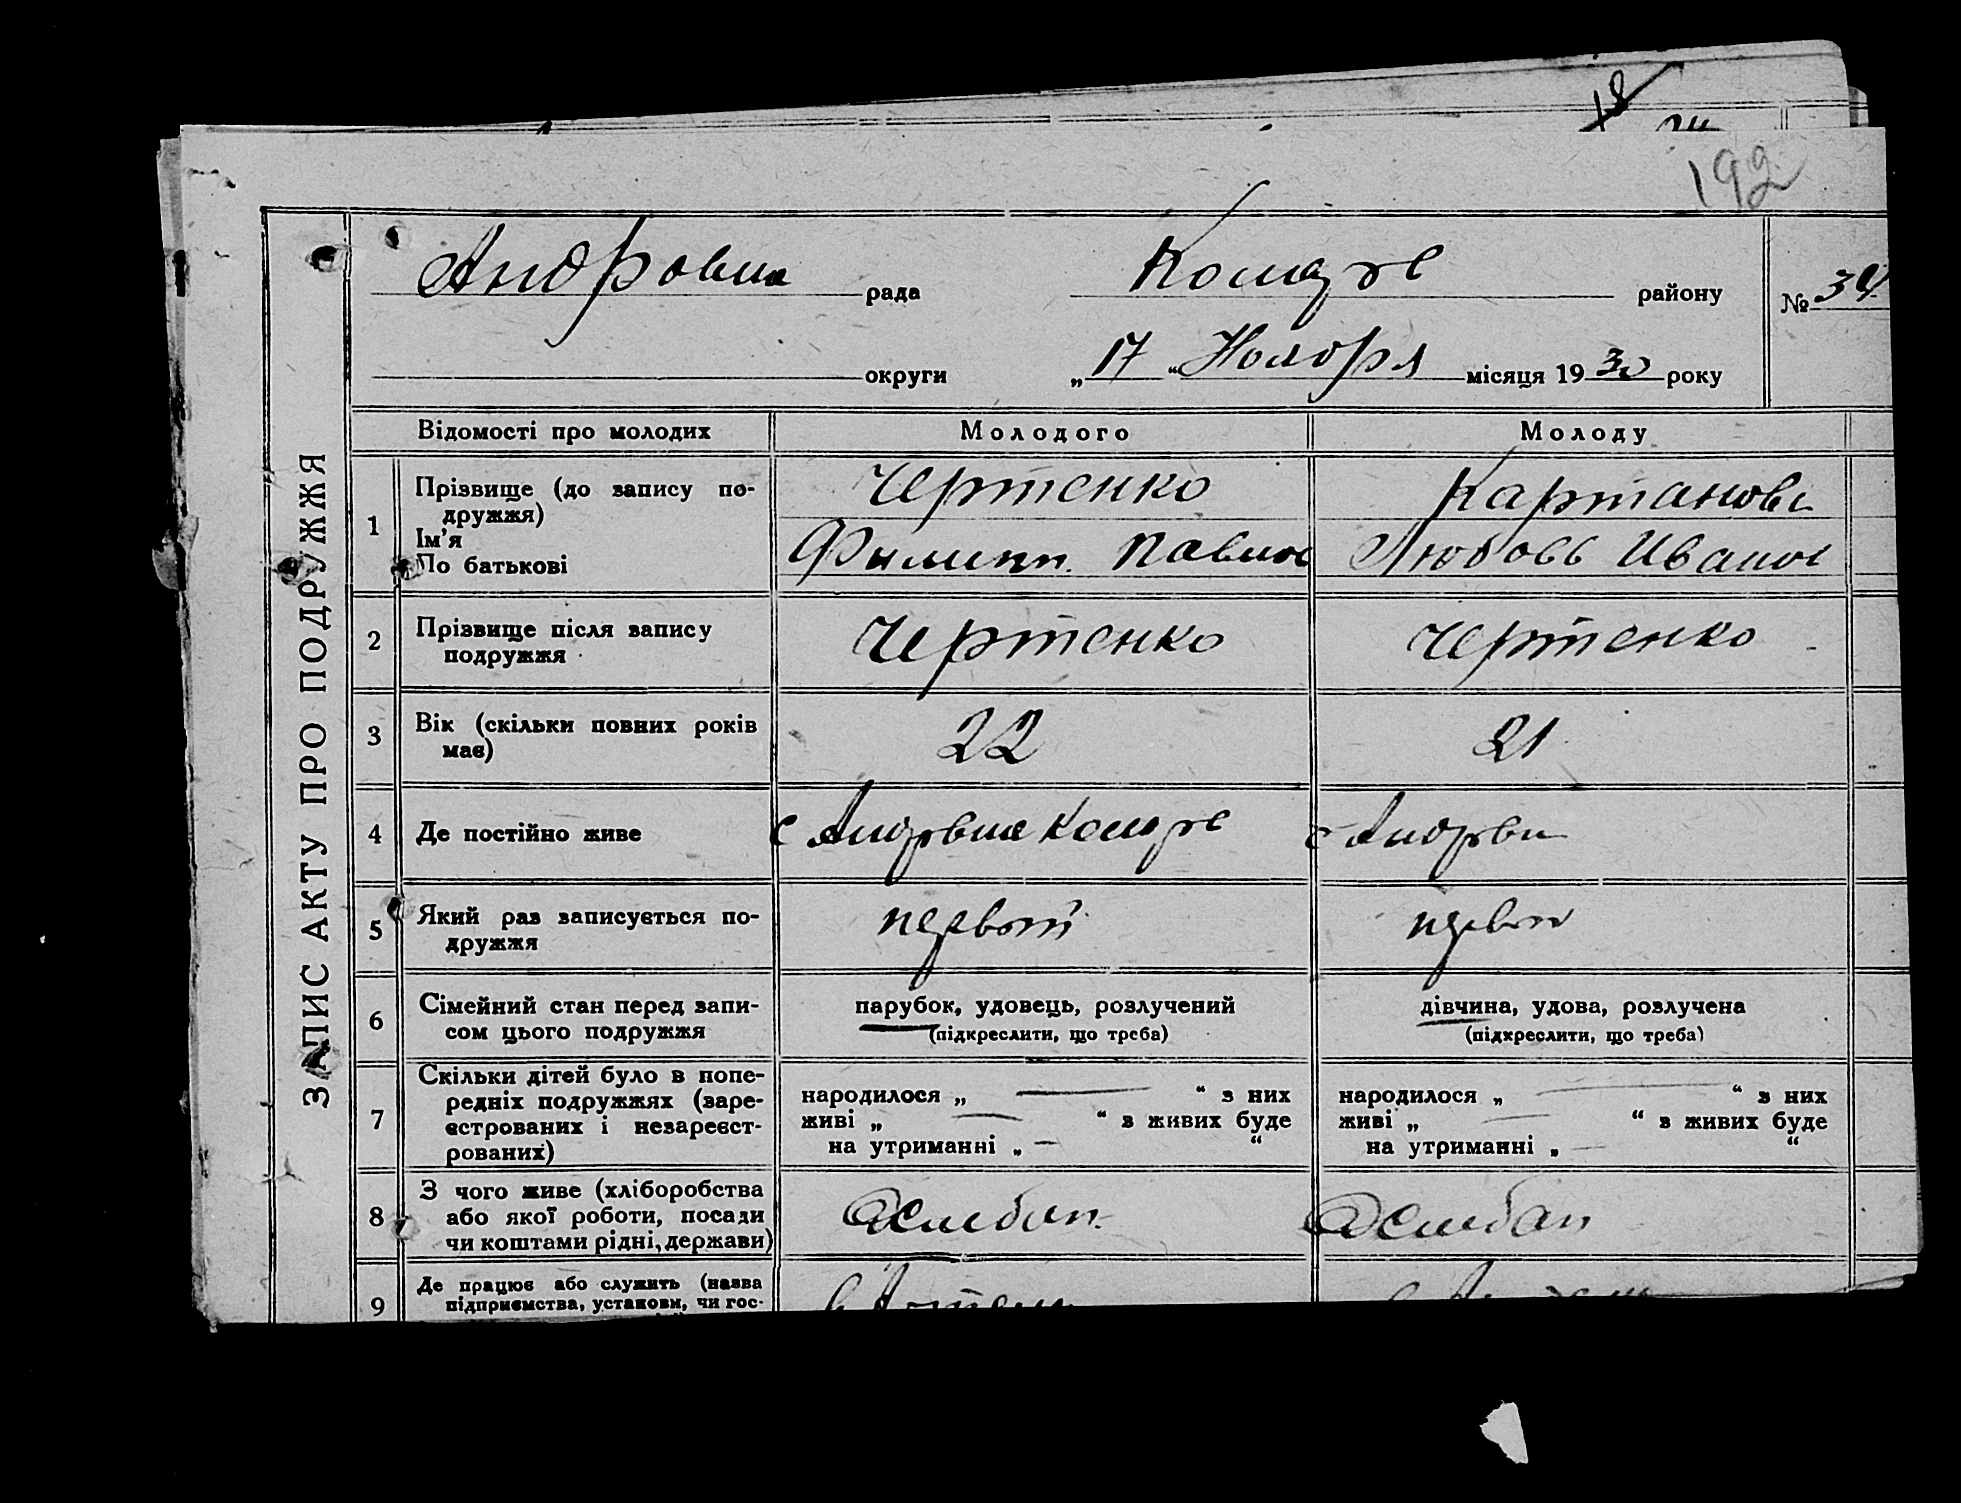 18
192
Андровка рада
района
№ 34
округи „17“ Ноября місяця 1930 року
ЗАПИС АКТУ ПРО ПОДРУЖЖЯ
Відомості про молодих
Молодого
Молоду
1
Прізвище (до запису по-
дружжя)
Ім’я
По батькові
Чертенко
Филипп Павлов
Картанова
Любовь Иванов
2
Прізвище після запису
подружжя
Чертенко
Чертенко
3
Вік (скільки повних років
має)
22
21
4
Де постійно живе
с
с
5
Який раз записується по-
дружжя
первый
первы
6
Сімейний стан перед запи-
сом цього подружжя
парубок, удовець, розлучений
(підкреслити, що треба)
дівчина, удова, розлучена
(підкреслити, що треба)
7
Скільки дітей було в попе-
редніх подружжях (заре-
єстрованих і незареєст-
рованих)
народилося „ — “ з них
живі „ — “ з живих буде
на утриманні „ — “
народилося „ — “ з них
живі „ — “ з живих буде
на утриманні „ — “
8
З чого живе (хліборобства
або якої роботи, посади
чи коштами рідні, держави)
9
Де працює або служить (назва
підприємства, установи, чи гос-